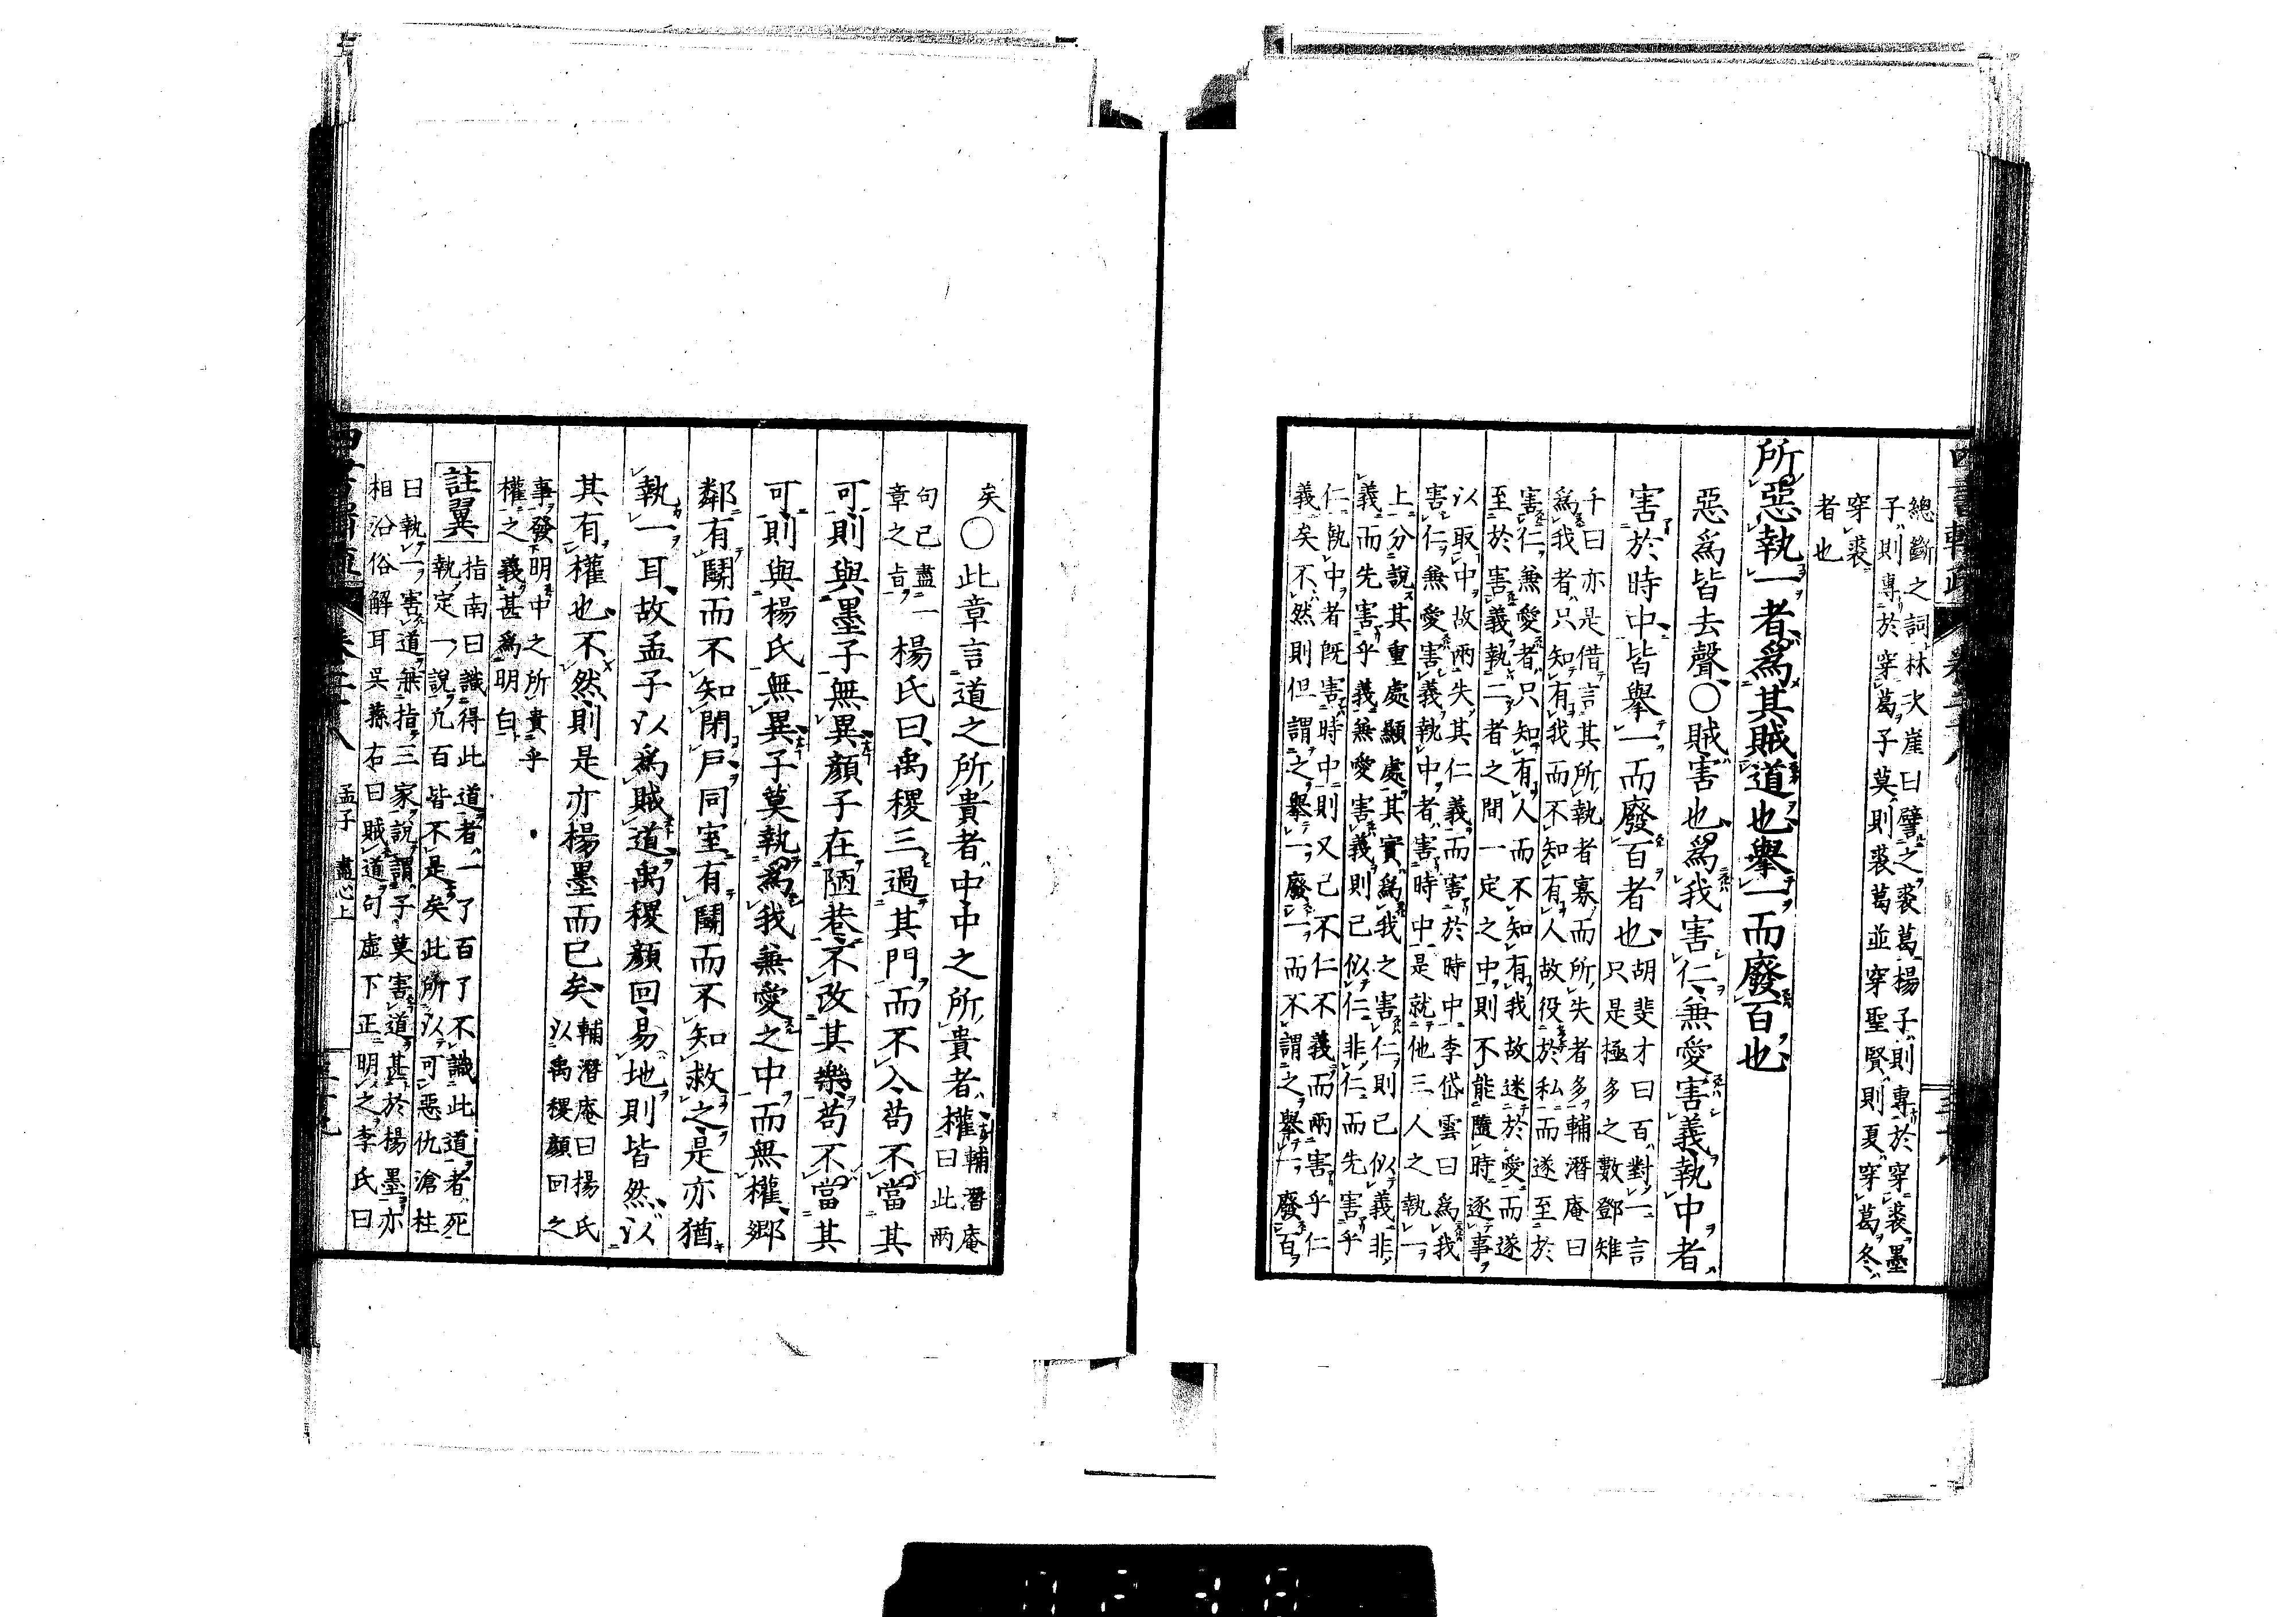 總斷之詞林次崖曰譬之裘葛楊子則專於穿裘墨
子則專於穿葛子莫則裘葛並穿聖賢則夏穿葛冬
穿裘
者也
所惡執一者爲其賊道也舉一而廢百也
惡爲皆去聲○賊害也爲我害仁兼愛害義執中者
害於時中皆舉一而廢百者也
胡斐才曰百對一言
只是極多之數鄧雉
千曰亦是借言其所執者寡而所失者多輔潛庵曰
爲我者只知有我而不知有人故役於私而遂至於
害仁兼愛者只知有人而不知有我故迷於愛而遂
至於害義執二者之間一定之中則不能隨時逐事
以取中故兩失其仁義而害於時中李岱雲曰爲我
害仁兼愛害義執中者害時中是就他三人之執一
上分說其重處顯處其實爲我之害仁則已似義非
義而先害乎義兼愛害義則已似仁非仁而先害乎
仁執中者既害時中則又已不仁不義而兩害乎仁
義矣不然則但謂之舉一廢一而不謂之舉一廢百
矣
○此章言道之所貴者中中之所貴者權
輔潛庵
曰此兩
句已盡一
章之㫖
楊氏曰禹稷三過其門而不入苟不當其
可則與墨子無異顏子在陋巷不改其樂苟不當其
可則與楊氏無異子莫執爲我兼愛之中而無權鄉
鄰有鬭而不知閉戶同室有鬭而不知救之是亦猶
執一耳故孟子以爲賊道禹稷顏回易地則皆然以
其有權也不然則是亦楊墨而已矣
輔潛庵曰楊氏
以禹稷顏回之
事發明中之所貴乎
權之義甚爲明白
註翼
指南曰識得此道者一了百了不識此道者死
執定一說凢百皆不是矣此所以可惡仇滄柱
曰執一害道兼指三家說謂子莫害道甚於楊墨亦
相沿俗解耳吳蓀右曰賊道句虛下正明之李氏曰
孟子 盡心上